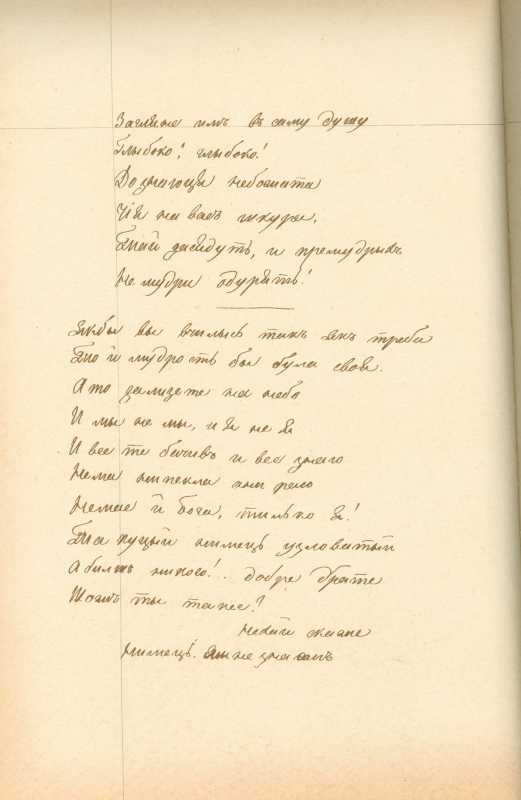 Загляне имъ въ саму душу
Глыбоко! глыбоко!
Дознаюця небожата
Чія на васъ шкура,
Тай засядутъ, и премудрыхъ
Не мудри одурятъ!
Якбы вы вчились такъ якъ треба
То й мудрость бы була своя.
А то зализете на небо
И мы не мы, и я не я
И все те бачивъ и все знаю
Нема ни пекла ани раю
Немае й бога, тилько я!
Та куцый нимець узловатый
А билшъ никого!.. добре брате
Що жъ ты таке?
Нехай скаже
Нимець. мы не знаемъ